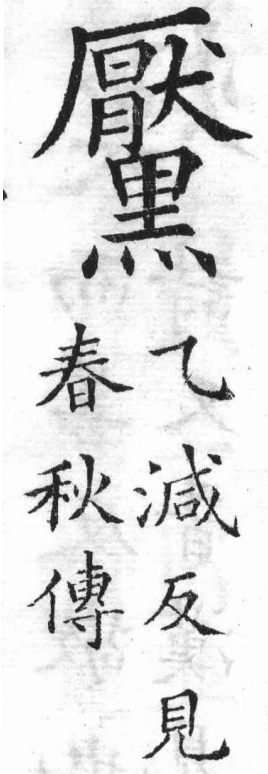 黶
乙減反見
春秋傳